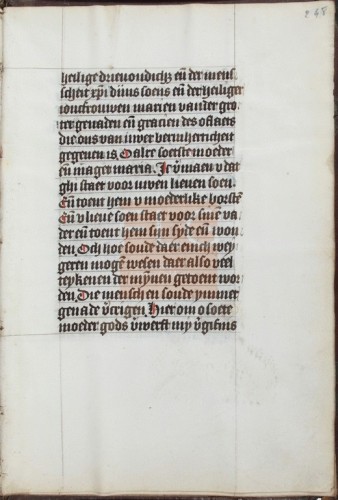 68
heilige drieuondich₃ eñ der men
scheit xp̄i dijns soens eñ der heiliger
ioncfrouwen marien van der gro
ter genaden eñ gracien des oflaets
die ons van uwer bermherticheit
gegeuen is O alre soetste moeder
eñ maget maria Ic v̄maen v dat
ghi staet voor uwen lieuen soen
Eñ toent hem v moederlike borstē
Eñ v lieue soen staet voor sinē va
der eñ toent hem sijn syde eñ won
den. Och hoe soude daer enich wey
geren mogē wesen daer also veel
teykenen der mȳnen getoent wor
den. Die mensch en soude ymmer
genade v̄crigen. Hier om o soete
moeder gods v̄werft my v̄giffnis